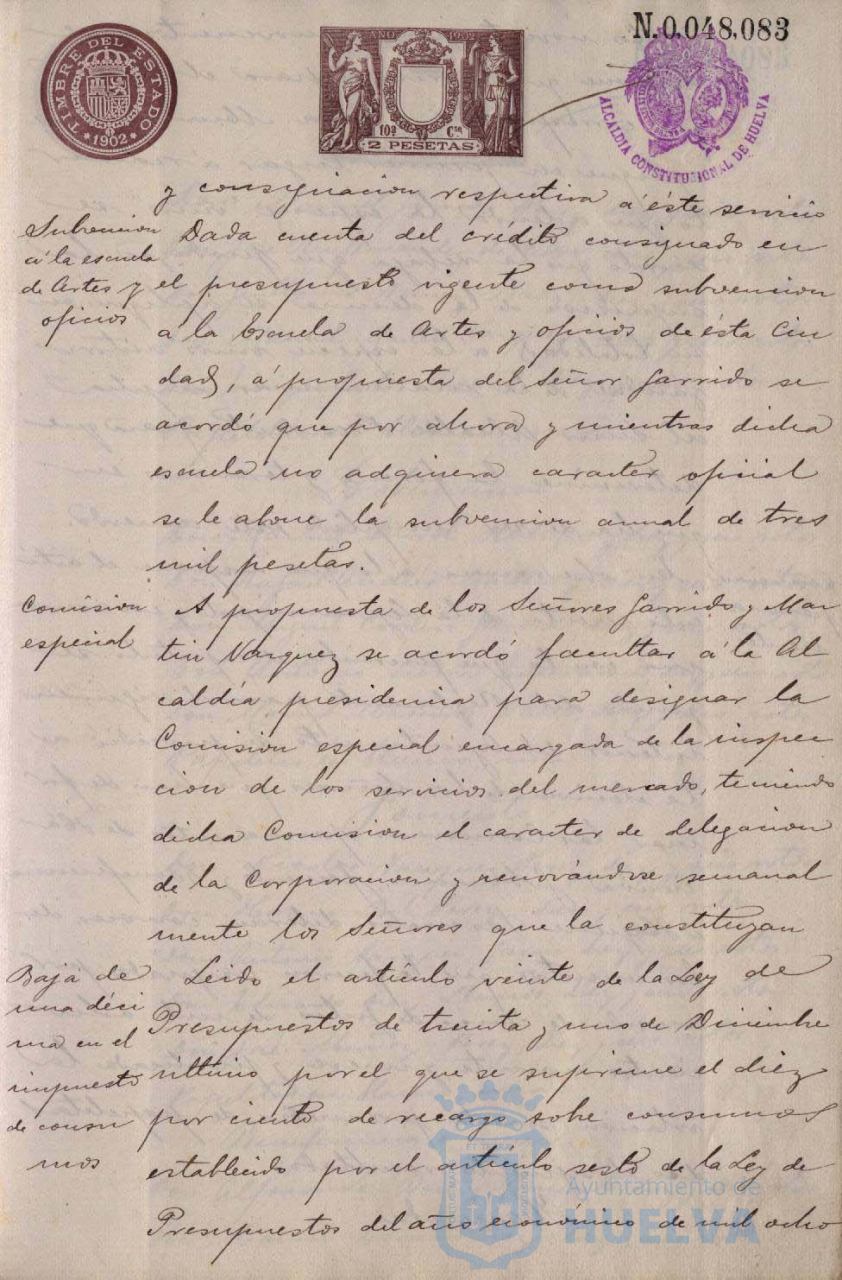 N.0.048,083
TIMBRE DEL ESTADO
*1902*
AÑO 1902
10ª Cse
2 PESETAS
ALCALDIA CONSTITUCIONAL DE HUELVA
y consignacion respectiva á éste servicio
Subvencion
á la escuela
de Artes y
oficios
Dada cuenta del crédito consignado en
el presupuesto vigente como subvencion
á la Escuela de Artes y oficios de ésta Ciu
dad, á propuesta del Señor Garrido se
acordó que por ahora y mientras dicha
escuela no adquiera caracter oficial
se le abone la subvencion anual de tres
mil pesetas.
Comision
especial
A propuesta de los Señores Garrido y Mar
tin Vazquez se acordó facultar á la Al
caldía presidencia para designar la
Comision especial encargada de la inspec
cion de los servicios del mercado, teniendo
dicha Comision el caracter de delegacion
de la Corporacion y renovándose semanal
mente los Señores que la constituyan
Baja de
una déci
ma en el
impuesto
de consu
mos
Leido el artículo veinte de la Ley de
Presupuestos de treinta y uno de Diciembre
último por el que se suprime el diez
por ciento de recargo sobre consumos
establecido por el artículo sesto de la Ley de
Presupuestos del año económico de mil ocho
Ayuntamiento de
HUELVA